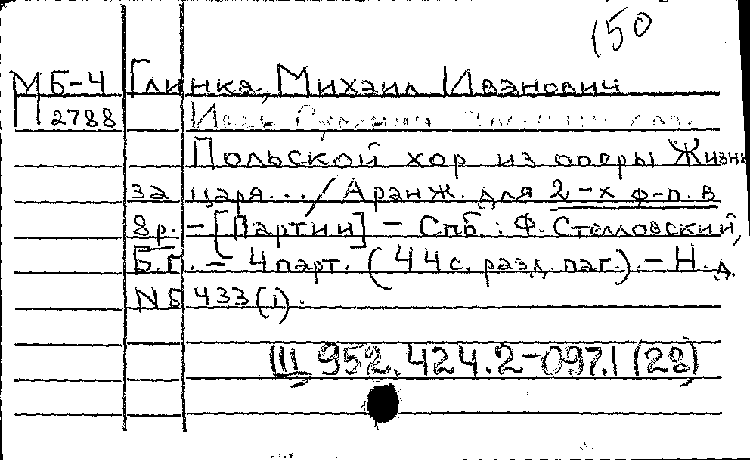 150
МБ-4 Глинка, Михаил Иванович
П 2788
Польской хор из оперы Жизнь
за царя.../Аранж. для 2-х ф-п. в
8р. - [Партии] - Спб.: Ф. Стелловский,
Б.г. - 4 парт. (44 с. разд. паг.). - Н.д.
NБ 433(1).
Ш 952.424.2-097.1(28)